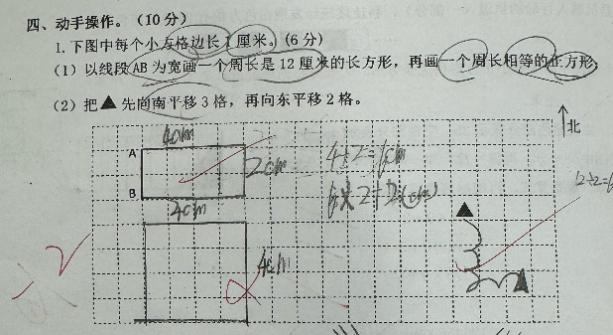 四、动手操作。（10分）
1.下图中每个小方格边长1厘米。（6分）
（1）以线段AB为宽画一个周长是12厘米的长方形，再画一个周长相等的正方形。
（2）把▲先向南平移3格，再向东平移2格。
北
4cm
A
2cm
B
4+2=6cm
6×2=12(cm)
4cm
4cm
12÷2=6
-2